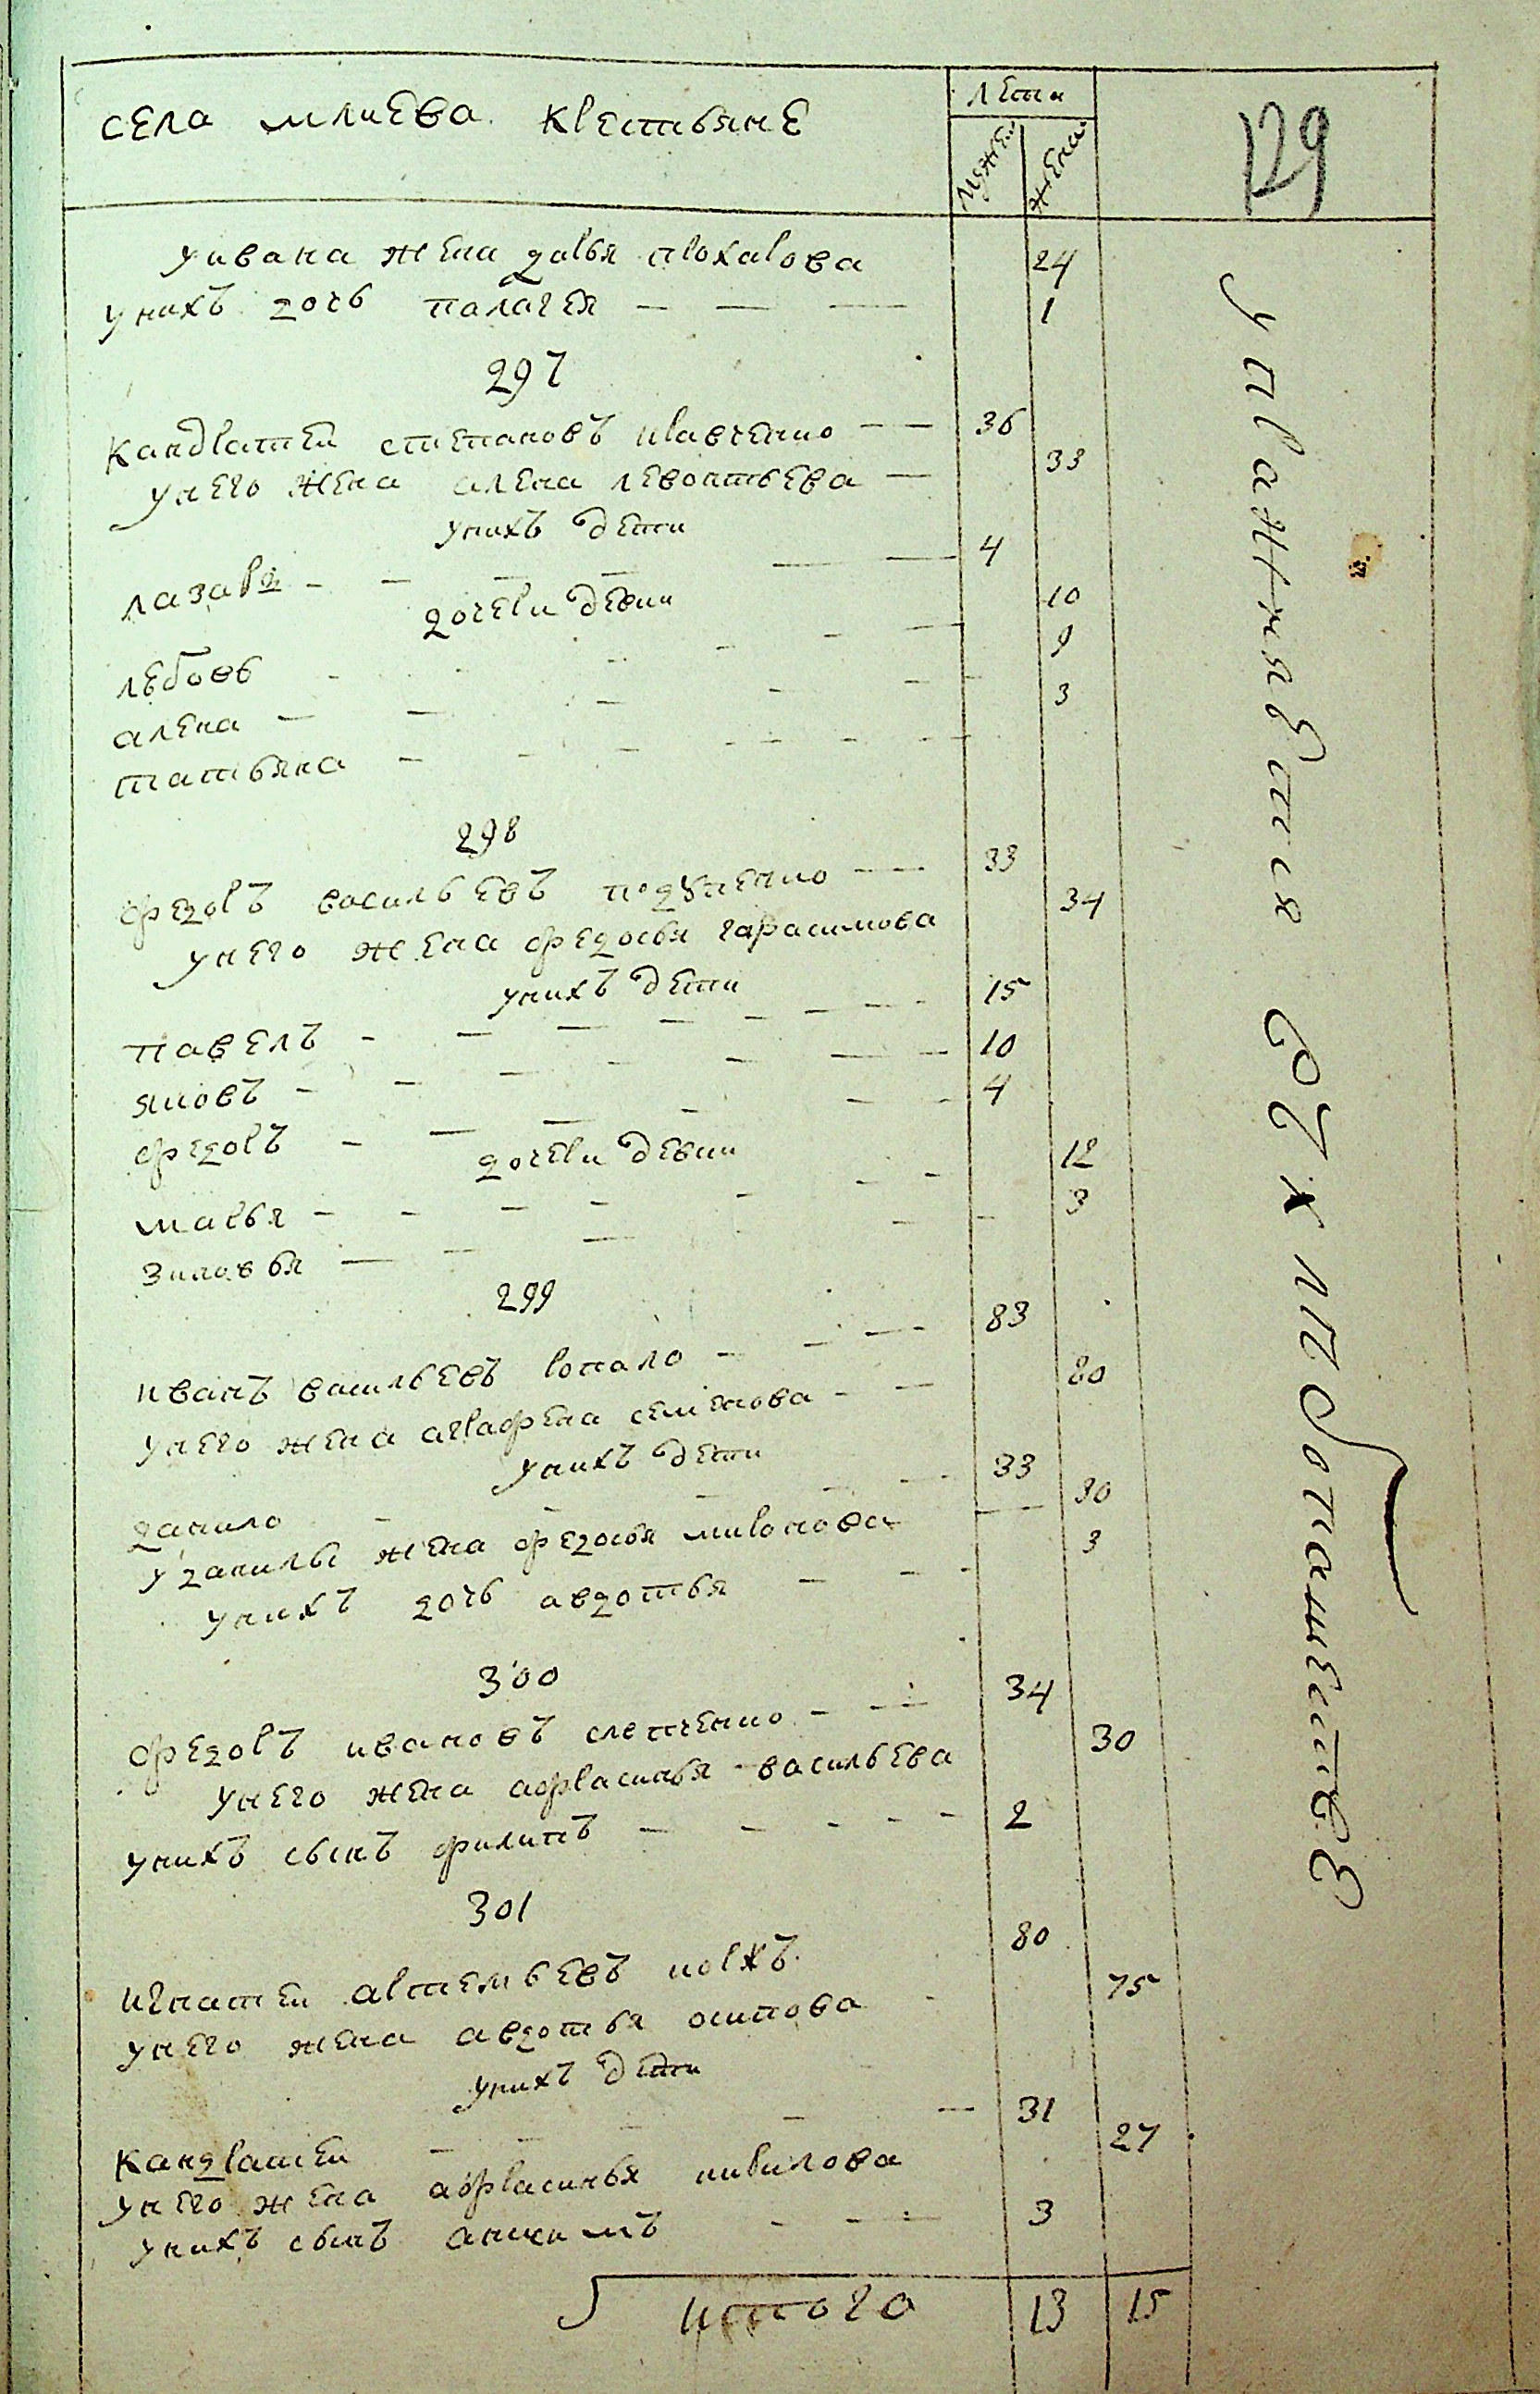 села млиева крестьяне
лета
муже.
жена.
129
у ивана жена дарья прохорова 24
у нихъ дочь палагея 1
297
кандратей степановъ кравченко 36
у него жена алена левонтьева 33
у нихъ дети
лазарь 4
дочери девки
любовь 10
алена 9
татьяна 3
298
федоръ васильевъ 33
у него жена федосья гарасимова 34
у нихъ дети
павелъ 15
яковъ 10
федоръ 4
дочери девки
марья 12
зиновья 3
299
иванъ васильевъ копало 83
у него жена аграфена семенова 80
у нихъ дети
данило 33
у данилы жена федосья миронова 30
у нихъ дочь авдотья 3
300
федоръ ивановъ слепченко 34
у него жена афрасинья васильева 30
у нихъ сынъ филипъ 2
301
игнатей артемьевъ коржъ 80
у него жена авдотья осипова 75
у нихъ дети
кандратей 31
у него жена афрасинья кирилова 27
у нихъ сынъ анисимъ 3
итого 13 15